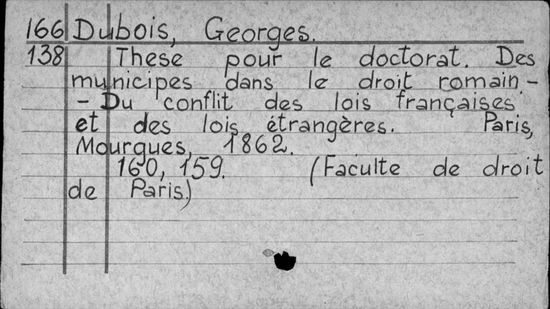 166 Dubois, Georges.
138 These pour le doctorat. Des
municipes dans le droit romain -
- Du conflit des lois françaises
et des lois étrangères. Paris,
Mourgues, 1862.
160, 159. (Faculte de droit
de Paris.)